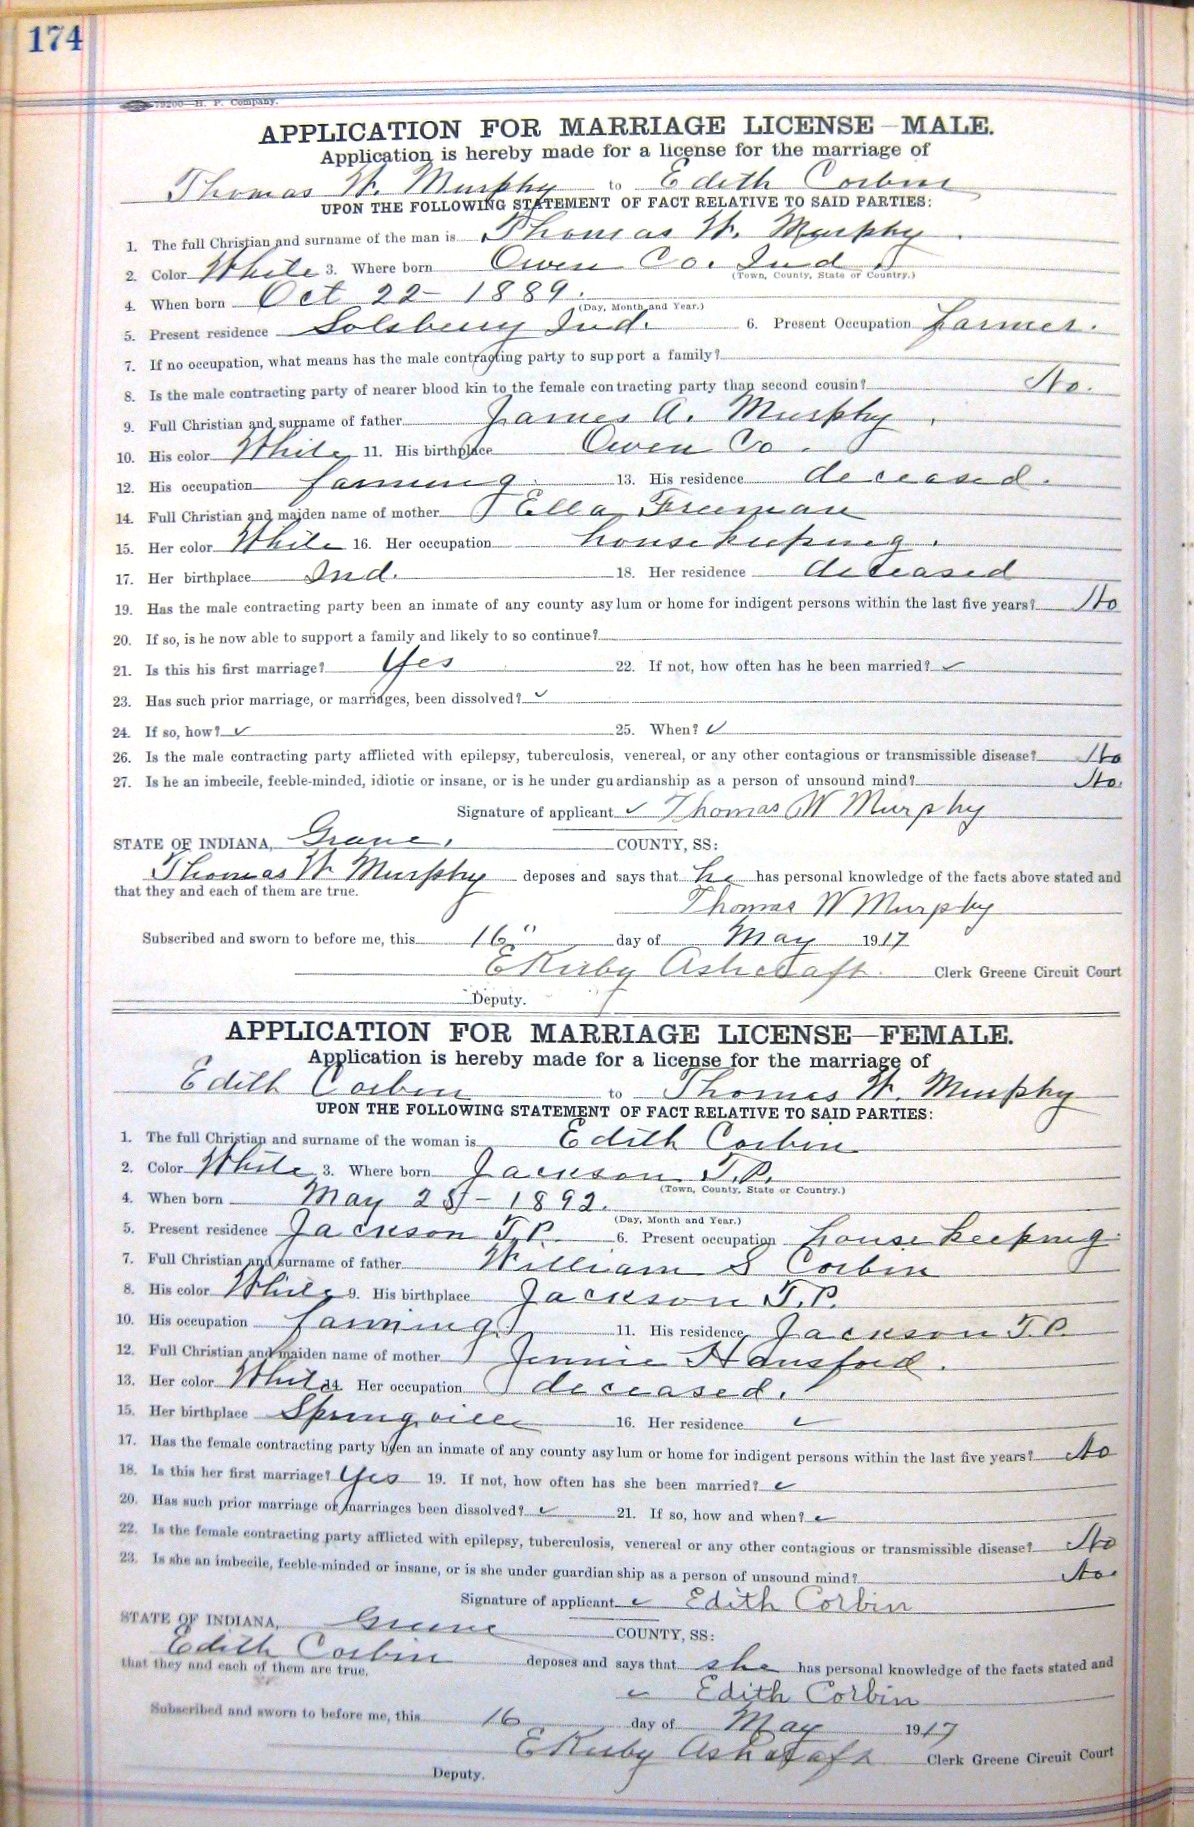 174
79200—H. P. Company.
APPLICATION FOR MARRIAGE LICENSE—MALE.
Application is hereby made for a license for the marriage of
Thomas W. Murphy to Edith Corbin
UPON THE FOLLOWING STATEMENT OF FACT RELATIVE TO SAID PARTIES:
1. The full Christian and surname of the man is Thomas W. Murphy.
2. Color White 3. Where born Owen Co. Ind.
(Town, County, State or Country.)
4. When born Oct 22 – 1889.
(Day, Month and Year.)
5. Present residence Solsberry Ind. 6. Present Occupation farmer.
7. If no occupation, what means has the male contracting party to support a family?
8. Is the male contracting party of nearer blood kin to the female contracting party than second cousin? No.
9. Full Christian and surname of father James A. Murphy.
10. His color White 11. His birthplace Owen Co.
12. His occupation farming 13. His residence deceased.
14. Full Christian and maiden name of mother Ella Freeman
15. Her color White 16. Her occupation housekeeping.
17. Her birthplace Ind. 18. Her residence deceased
19. Has the male contracting party been an inmate of any county asylum or home for indigent persons within the last five years? No
20. If so, is he now able to support a family and likely to so continue?
21. Is this his first marriage? Yes 22. If not, how often has he been married? ✓
23. Has such prior marriage, or marriages, been dissolved? ✓
24. If so, how? ✓ 25. When? ✓
26. Is the male contracting party afflicted with epilepsy, tuberculosis, venereal, or any other contagious or transmissible disease? No
27. Is he an imbecile, feeble-minded, idiotic or insane, or is he under guardianship as a person of unsound mind? No.
Signature of applicant ✓ Thomas W Murphy
STATE OF INDIANA, Greene, COUNTY, SS:
Thomas W Murphy deposes and says that he has personal knowledge of the facts above stated and
that they and each of them are true.
Thomas W Murphy
Subscribed and sworn to before me, this 16" day of May 1917
E Kirby Ashcraft. Clerk Greene Circuit Court
Deputy.
APPLICATION FOR MARRIAGE LICENSE—FEMALE.
Application is hereby made for a license for the marriage of
Edith Corbin to Thomas W. Murphy
UPON THE FOLLOWING STATEMENT OF FACT RELATIVE TO SAID PARTIES:
1. The full Christian and surname of the woman is Edith Corbin
2. Color White 3. Where born Jackson T.P.
(Town, County, State or Country.)
4. When born May – 1892.
(Day, Month and Year.)
5. Present residence Jackson T.P. 6. Present occupation housekeeping.
7. Full Christian and surname of father William S Corbin
8. His color White 9. His birthplace Jackson T.P.
10. His occupation farming 11. His residence Jackson T.P.
12. Full Christian and maiden name of mother Jennie Hansford.
13. Her color White 14 Her occupation deceased.
15. Her birthplace Springville 16. Her residence ✓
17. Has the female contracting party been an inmate of any county asylum or home for indigent persons within the last five years? No
18. Is this her first marriage? Yes 19. If not, how often has she been married? ✓
20. Has such prior marriage or marriages been dissolved? ✓ 21. If so, how and when? ✓
22. Is the female contracting party afflicted with epilepsy, tuberculosis, venereal or any other contagious or transmissible disease? No
23. Is she an imbecile, feeble-minded or insane, or is she under guardianship as a person of unsound mind? No.
Signature of applicant ✓ Edith Corbin
STATE OF INDIANA, Greene COUNTY, SS:
Edith Corbin deposes and says that she has personal knowledge of the facts stated and
that they and each of them are true.
✓ Edith Corbin
Subscribed and sworn to before me, this 16 day of May 1917
E Kirby Ashcraft Clerk Greene Circuit Court
Deputy.